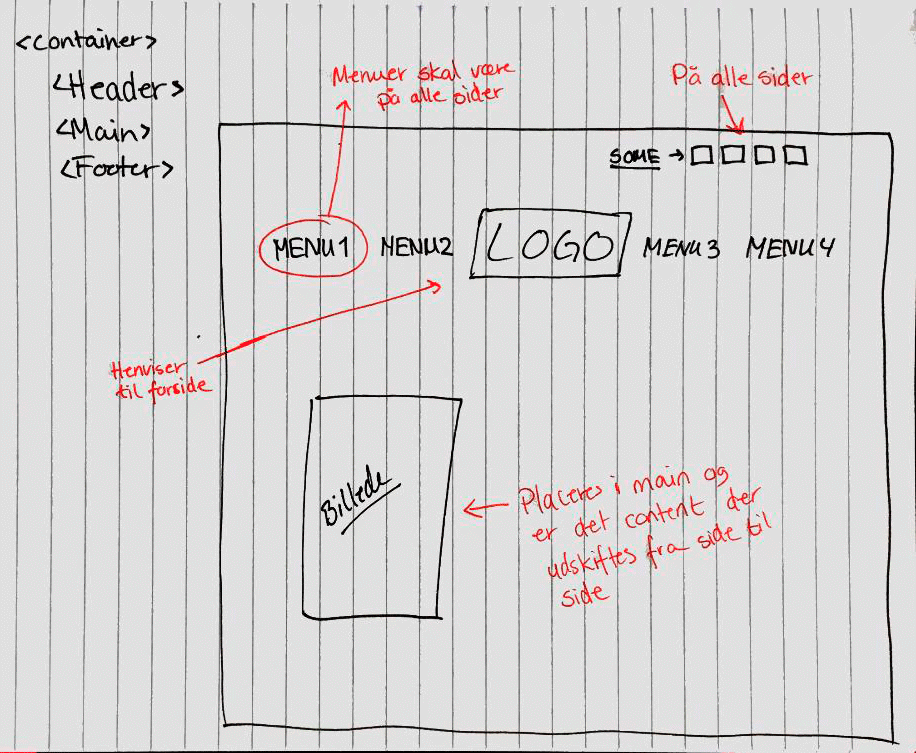 <container>
<Headers>
<Main>
<Footer>
Menuer skal være
på alle sider
På alle sider
SOME →
MENU1 MENU2 LOGO MENU3 MENU4
Henviser
til forside
Billede
Placeres i main og
er det content der
udskiftes fra side til
side